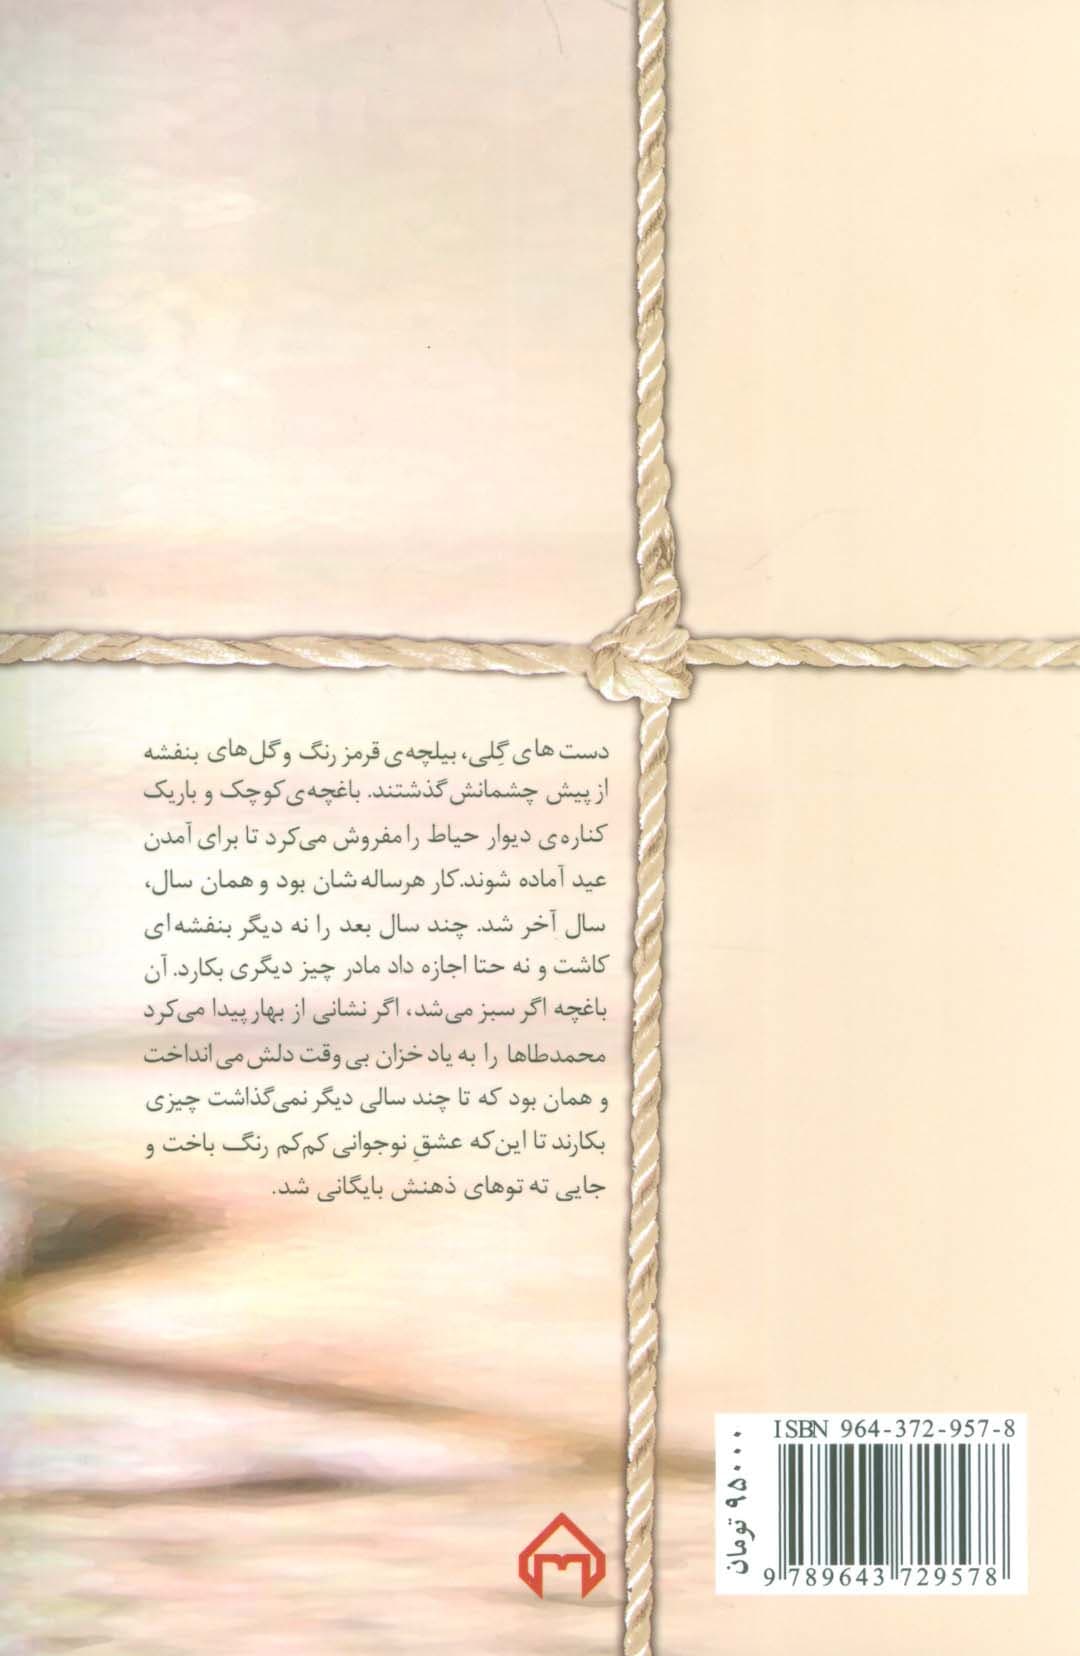 دست های گِلی، بیلچه‌ی قرمز رنگ و گل‌های بنفشه
از پیش چشمانش گذشتند. باغچه‌ی کوچک و باریک
کناره‌ی دیوار حیاط را مفروش می‌کرد تا برای آمدن
عید آماده شوند. کار هرساله شان بود و همان سال،
سال آخر شد. چند سال بعد را نه دیگر بنفشه ای
کاشت و نه حتا اجازه داد مادر چیز دیگری بکارد. آن
باغچه اگر سبز می‌شد، اگر نشانی از بهار پیدا می‌کرد
محمدطاها را به یاد خزان بی وقت دلش می انداخت
و همان بود که تا چند سالی دیگر نمی‌گذاشت چیزی
بکارند تا این‌که عشقِ نوجوانی کم‌کم رنگ باخت و
جایی ته توهای ذهنش بایگانی شد.
ISBN 964-372-957-8
۹۵۰۰۰ تومان
9 789643 729578